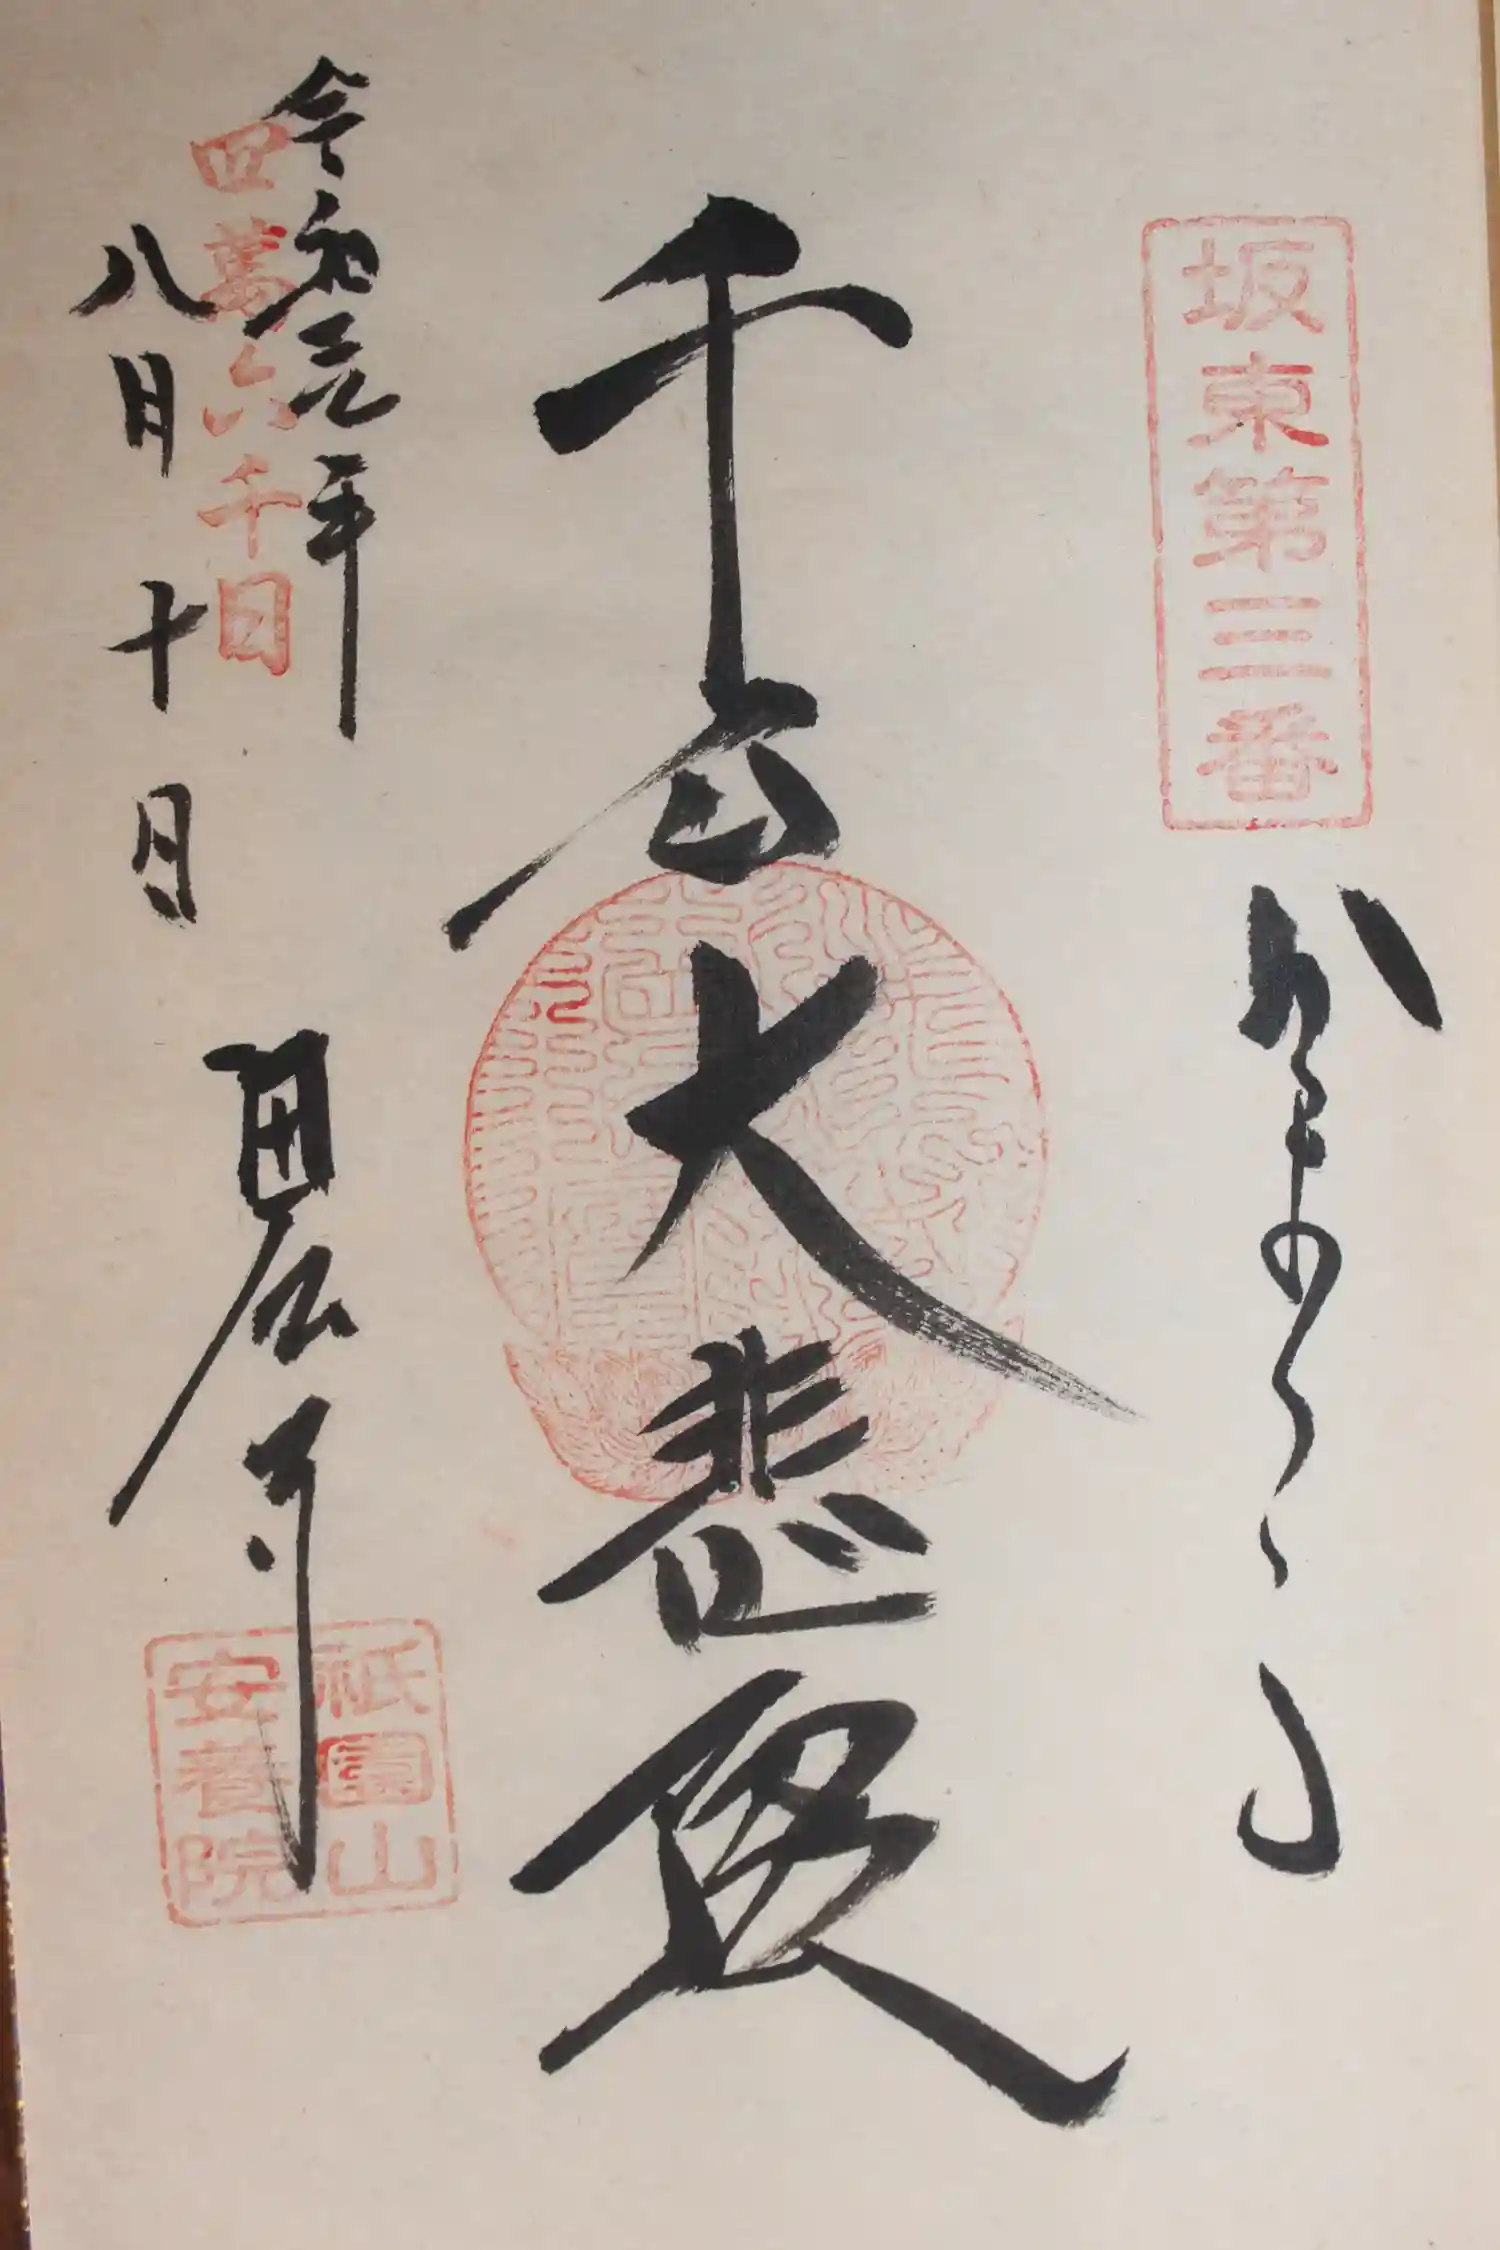 坂東第三番
かまくら
千手大悲殿
令和元年
四萬六千日
八月十日
田代寺
祇園山
安養院